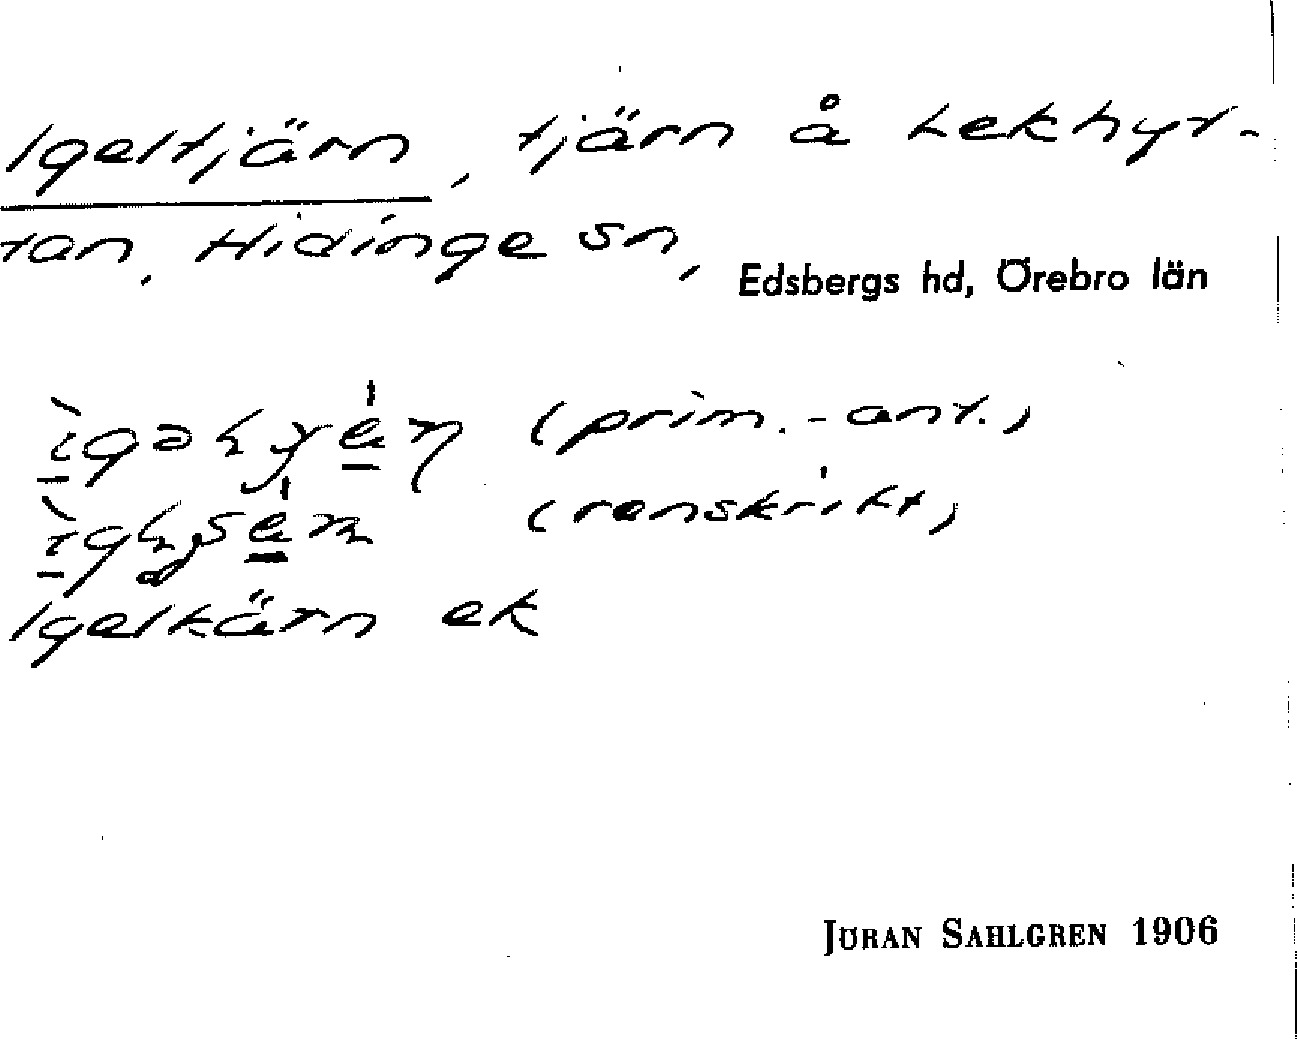 Igeltjärn, tjärn å Lekhyt-
tan, Hidinge sn,
Edsbergs hd, Örebro län
(prim.-ant.)
(renskrikt)
Igelkärn ek
JÖRAN SAHLGREN 1906